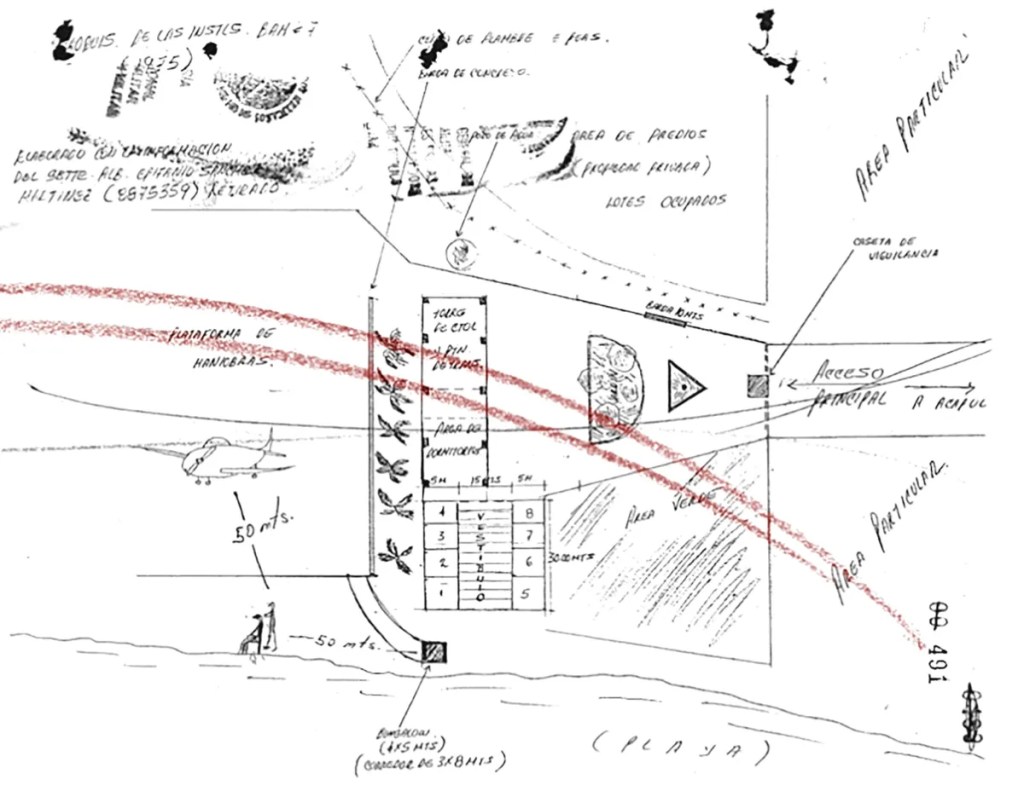 CROQUIS. DE LAS INSTLS. BAM # 7
(1975)
MILITAR
ELABORADO CON INFORMACION
DEL SGTTE. ALB. EPITANIO SANCHEZ
MILTINEZ (8875359) RETIRADO.
DE ALAMBRE E PUAS.
BARDA DE CONCRETO.
POZO DE AGUA
AREA DE PREDIOS
(PROPIEDAD PRIVADA)
LOTES OCUPADOS
AREA PARTICULAR
CASETA DE
VIGUILANCIA
PLATAFORMA DE
MANIOBRAS.
TORRE
DE CTOL
AREA DE
DORMITORIOS
ACCESO
PRINCIPAL
A ACAPUL
5M 15 5M
4 8
3 7
2 6
1 5
VESTIBULO
30.00 MTS
AREA VERDE
AREA PARTICULAR.
50 mts.
50 mts.
00 491
BUNGALOW.
(4X5 MTS)
(CORREDOR DE 3X8 MTS)
(PLAYA)